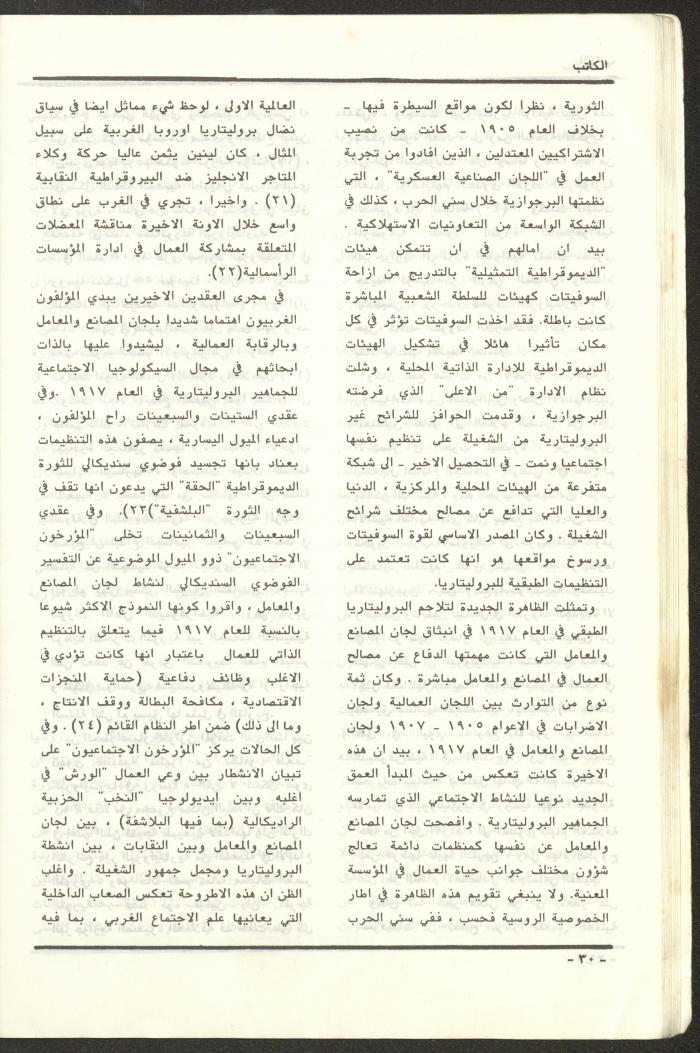 الكاتب
الثورية ، نظرا لكون مواقع السيطرة فيها -
بخلاف العام ١٩٠٥ - كانت من نصيب
الاشتراكيين المعتدلين ، الذين افادوا من تجربة
العمل في "اللجان الصناعية العسكرية" ، التي
نظمتها البرجوازية خلال سني الحرب ، كذلك في
الشبكة الواسعة من التعاونيات الاستهلاكية .
بيد ان امالهم في ان تتمكن هيئات
"الديموقراطية التمثيلية" بالتدريج من ازاحة
السوفيتات كهيئات للسلطة الشعبية المباشرة
كانت باطلة. فقد اخذت السوفيتات تؤثر في كل
مكان تأثيرا هائلا في تشكيل الهيئات
الديموقراطية للادارة الذاتية المحلية ، وشلت
نظام الادارة "من الاعلى" الذي فرضته
البرجوازية ، وقدمت الحوافز للشرائح غير
البروليتارية من الشغيلة على تنظيم نفسها
اجتماعيا ونمت - في التحصيل الاخير - الى شبكة
متفرعة من الهيئات المحلية والمركزية ، الدنيا
والعليا التي تدافع عن مصالح مختلف شرائح
الشغيلة . وكان المصدر الاساسي لقوة السوفيتات
ورسوخ مواقعها هو انها كانت تعتمد على
التنظيمات الطبقية للبروليتاريا.
وتمثلت الظاهرة الجديدة لتلاحم البروليتاريا
الطبقي في العام ١٩١٧ في انبثاق لجان المصانع
والمعامل التي كانت مهمتها الدفاع عن مصالح
العمال في المصانع والمعامل مباشرة . وكان ثمة
نوع من التوارث بين اللجان العمالية ولجان
الاضرابات في الاعوام ١٩٠٥ - ١٩٠٧ ولجان
المصانع والمعامل في العام ١٩١٧ ، بيد ان هذه
الاخيرة كانت تعكس من حيث المبدأ العمق
الجديد نوعيا للنشاط الاجتماعي الذي تمارسه
الجماهير البروليتارية . وافصحت لجان المصانع
والمعامل عن نفسها كمنظمات دائمة تعالج
شؤون مختلف جوانب حياة العمال في المؤسسة
المعنية. ولا ينبغي تقويم هذه الظاهرة في اطار
الخصوصية الروسية فحسب ، ففي سني الحرب
العالمية الاولى ، لوحظ شيء مماثل ايضا في سياق
نضال بروليتاريا اوروبا الغربية على سبيل
المثال ، كان لينين يثمن عاليا حركة وكلاء
المتاجر الانجليز ضد البيروقراطية النقابية
(٢١) . واخيرا ، تجري في الغرب على نطاق
واسع خلال الاونة الاخيرة مناقشة المعضلات
المتعلقة بمشاركة العمال في ادارة المؤسسات
الرأسمالية(٢٢).
في مجرى العقدين الاخيرين يبدي المؤلفون
الغربيون اهتماما شديدا بلجان المصانع والمعامل
وبالرقابة العمالية ، ليشيدوا عليها بالذات
ابحاثهم في مجال السيكولوجيا الاجتماعية
للجماهير البروليتارية في العام ١٩١٧ .وفي
عقدي الستينات والسبعينات راح المؤلفون ،
ادعياء الميول اليسارية ، يصفون هذه التنظيمات
بعناد بانها تجسيد فوضوي سنديكالي للثورة
الديموقراطية "الحقة" التي يدعون انها تقف في
وجه الثورة "البلشفية")٢٣). وفي عقدي
السبعينات والثمانينات تخلى "المؤرخون
الاجتماعيون" ذوو الميول الموضوعية عن التفسير
الفوضوي السنديكالي لنشاط لجان المصانع
والمعامل ، واقروا كونها النموذج الاكثر شيوعا
بالنسبة للعام ١٩١٧ فيما يتعلق بالتنظيم
الذاتي للعمال باعتبار انها كانت تؤدي في
الاغلب وظائف دفاعية (حماية المنجزات
الاقتصادية ، مكافحة البطالة ووقف الانتاج ،
وما الى ذلك) ضمن اطر النظام القائم (٢٤) . وفي
كل الحالات يركز "المؤرخون الاجتماعيون" على
تبيان الانشطار بين وعي العمال "الورش" في
اغلبه وبين ايديولوجيا "النخب" الحزبية
الراديكالية (بما فيها البلاشفة) ، بين لجان
المصانع والمعامل وبين النقابات ، بين انشطة
البروليتاريا ومجمل جمهور الشغيلة . واغلب
الظن ان هذه الاطروحة تعكس الصعاب الداخلية
التي يعانيها علم الاجتماع الغربي ، بما فيه
- ٣٠ -